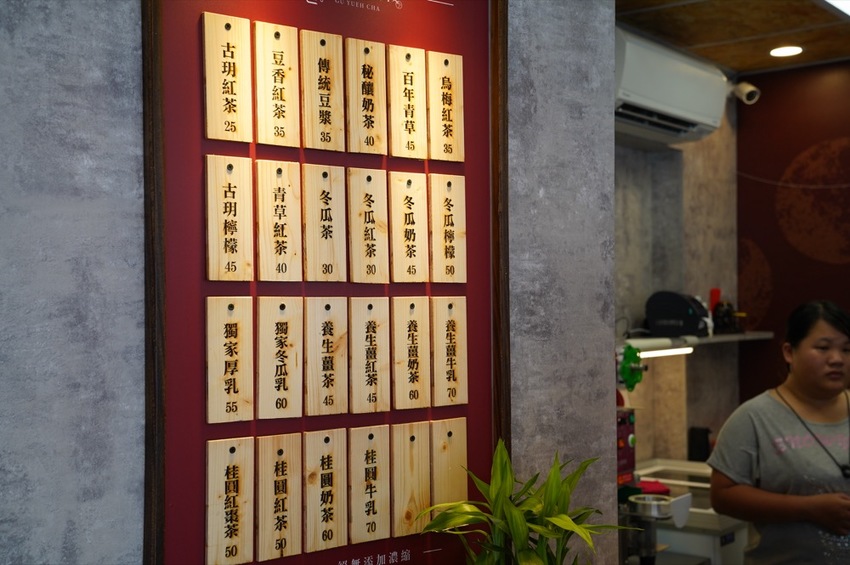 GU YUEH CHA
古玥紅茶 25
豆香紅茶 35
傳統豆漿 35
秘釀奶茶 40
百年青草 45
烏梅紅茶 35
古玥檸檬 45
青草紅茶 40
冬瓜茶 30
冬瓜紅茶 30
冬瓜奶茶 45
冬瓜檸檬 50
獨家厚乳 55
獨家冬瓜乳 60
養生薑茶 45
養生薑紅茶 45
養生薑奶茶 60
養生薑牛乳 70
桂圓紅棗茶 50
桂圓紅茶 50
桂圓奶茶 60
桂圓牛乳 70
無添加濃縮